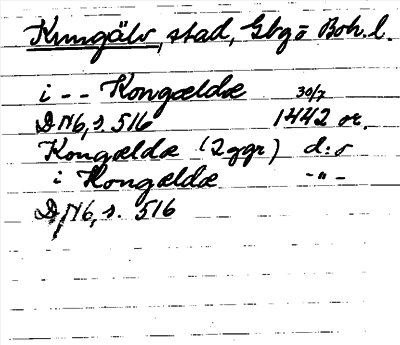 Kungälv, stad, Gbg o Boh. l.
i -- Kongældæ 30/7
DN6, s. 516 1442 or.
Kongældæ (2 ggr) d:o
i Kongældæ -"-
DN6, s. 516